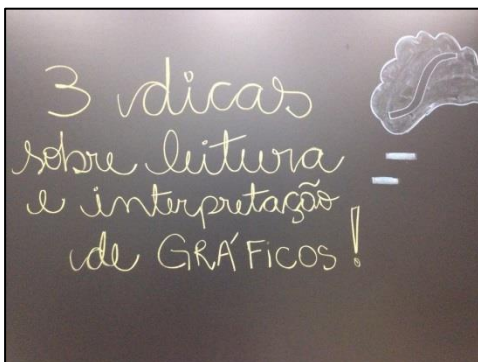 3 dicas
sobre leitura
e interpretação
de GRÁFICOS!